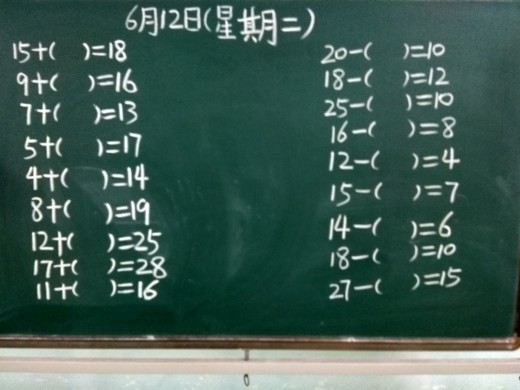 6月12日(星期二)
15+( )=18
9+( )=16
7+( )=13
5+( )=17
4+( )=14
8+( )=19
12+( )=25
17+( )=28
11+( )=16
20-( )=10
18-( )=12
25-( )=10
16-( )=8
12-( )=4
15-( )=7
14-( )=6
18-( )=10
27-( )=15